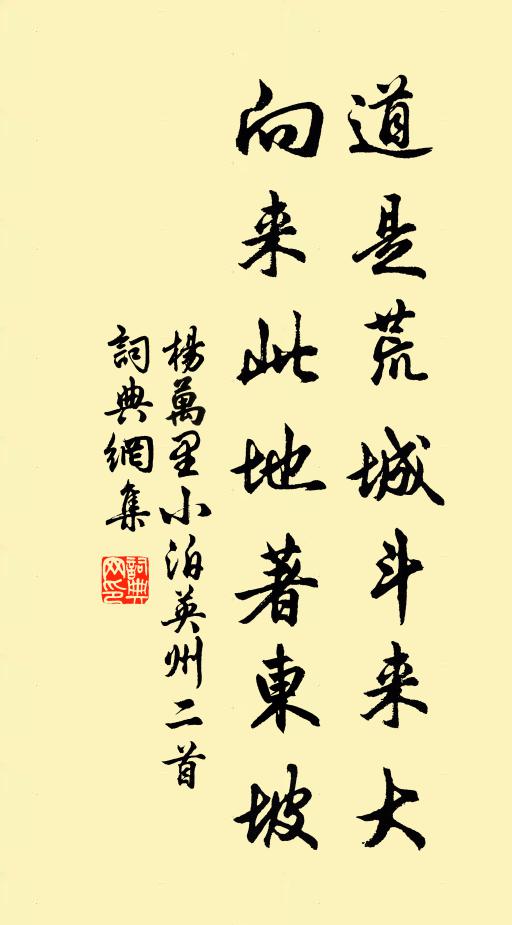 道是荒城斗来大
向来此地著東坡
楊萬里小泊英州二首
詞典網集
詞典
网印